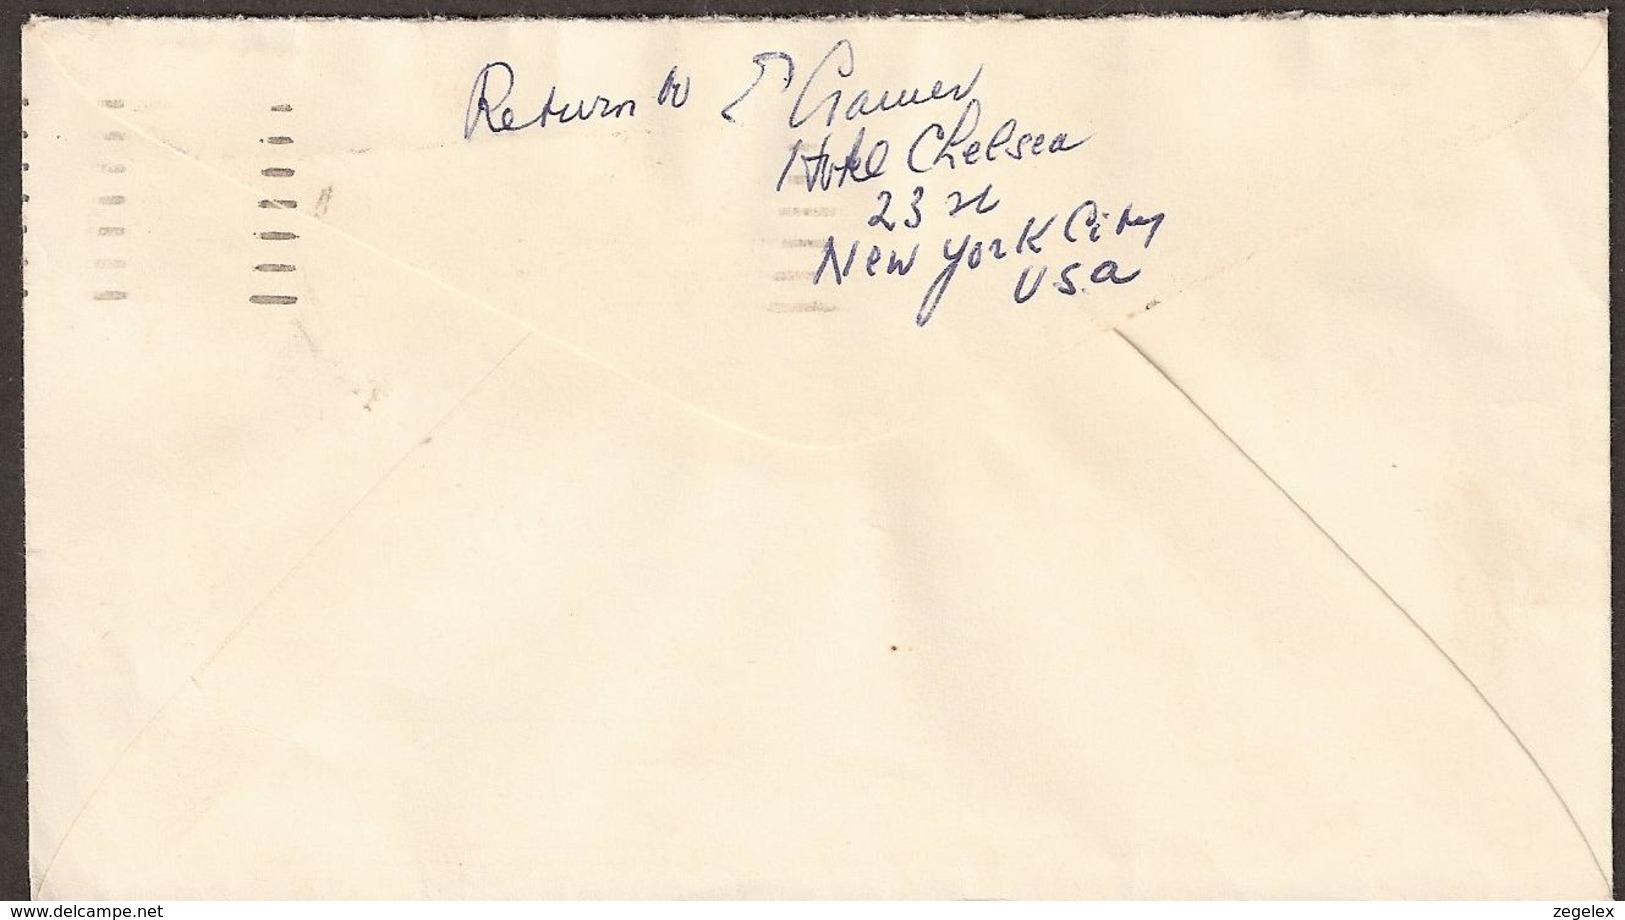 Return to E Cramer
Hotel Chelsea
23 st
New York City
USA
www.delcampe.net
zegelex